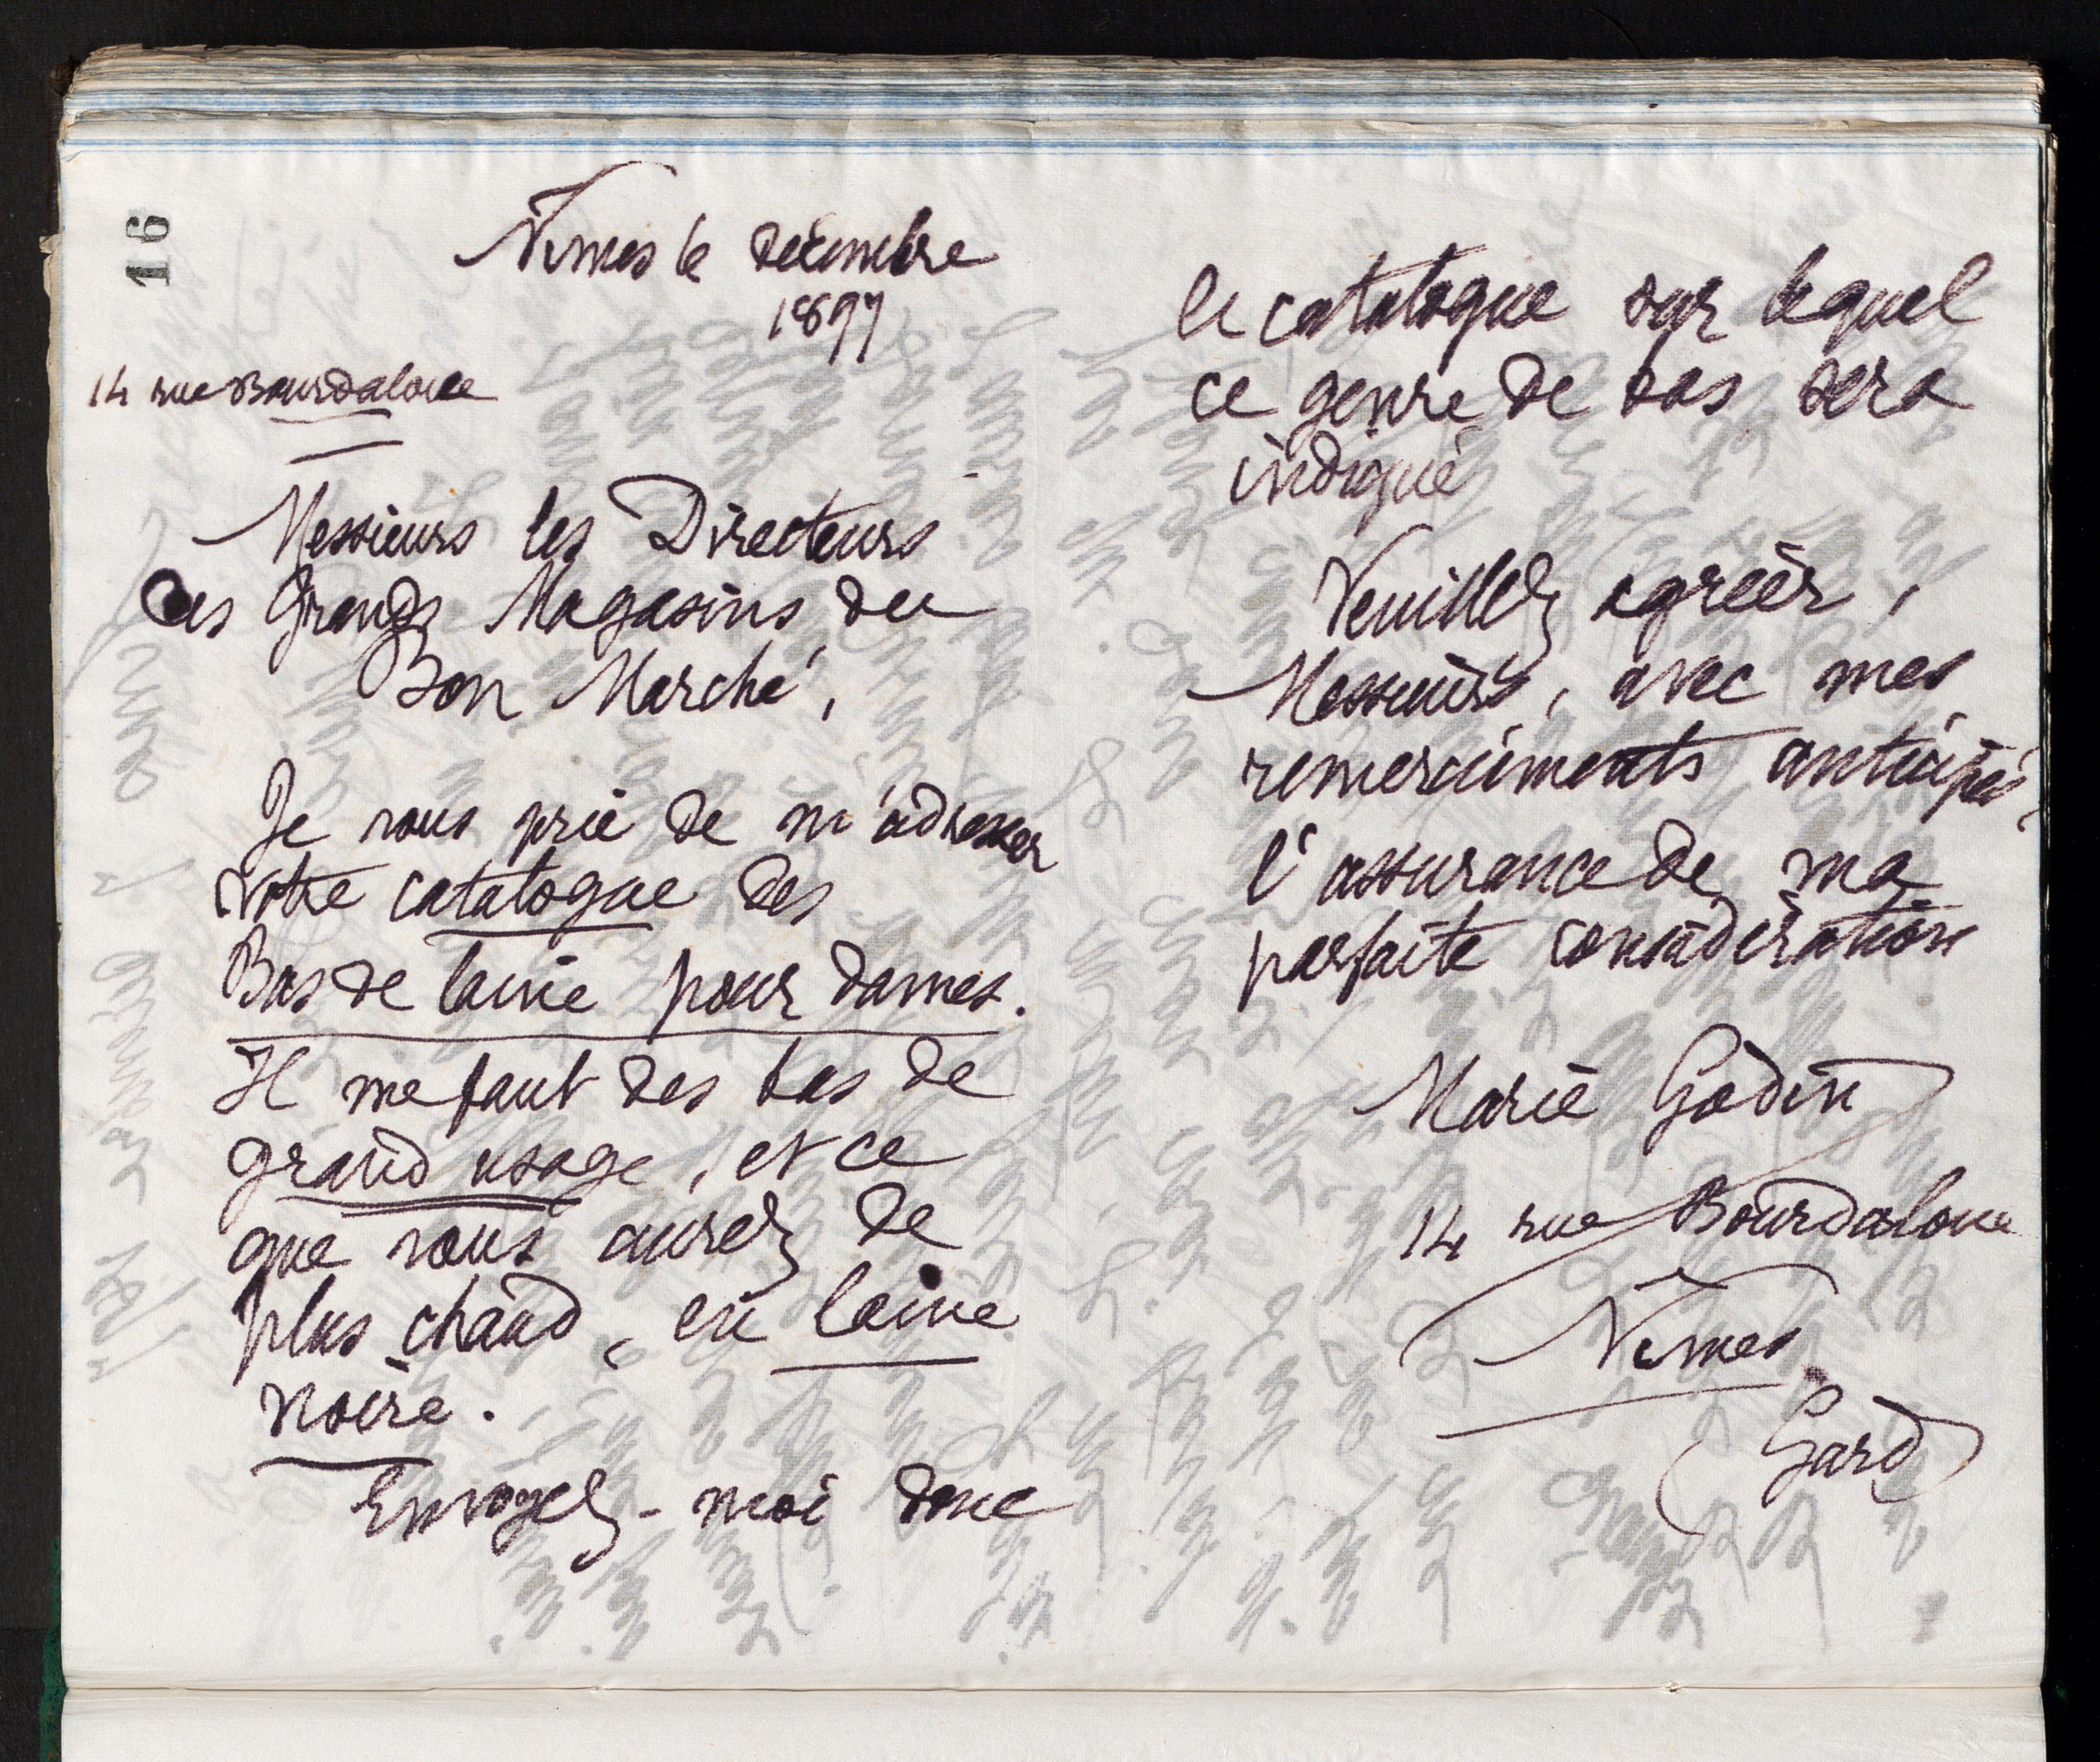 16
Nîmes le décembre
1897
14 rue Bourdaloue
Messieurs les Directeurs
des Grands Magasins du
Bon Marché,
Je vous prie de m'adresser
votre catalogue des
Bas de laine pour dames.
Il me faut des bas de
grand usage, et ce
que vous aurez de
plus chaud, en laine
noire.
Envoyez-moi donc
le catalogue sur lequel
ce genre de bas sera
indiqué
Veuillez agréer,
Messieurs, avec mes
remerciments anticipés,
l'assurance de ma
parfaite considération
Marie Godin
14 rue Bourdaloue
Nîmes
(Gard)